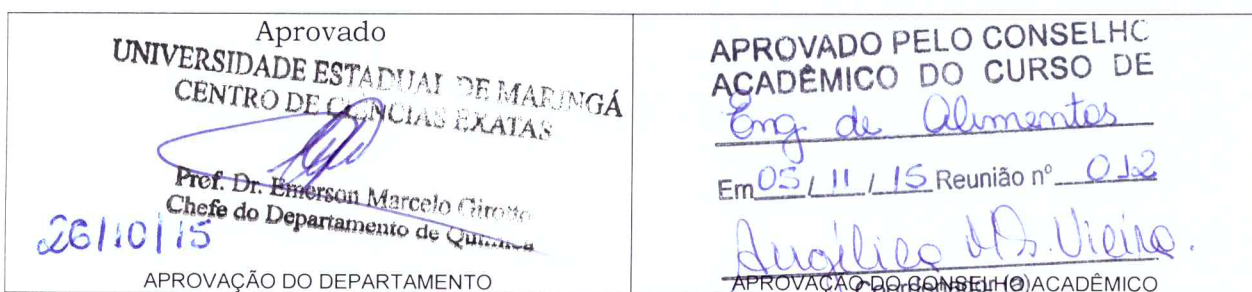 Aprovado
UNIVERSIDADE ESTADUAL DE MARINGÁ
CENTRO DE CIÊNCIAS EXATAS
Prof. Dr. Emerson Marcelo Girotto
Chefe do Departamento de Química
26/10/15
APROVAÇÃO DO DEPARTAMENTO
APROVADO PELO CONSELHO
ACADÊMICO DO CURSO DE
Eng. de Alimentos
Em 05/11/15 Reunião nº 012
Angélica Vieira.
APROVAÇÃO DO CONSELHO ACADÊMICO